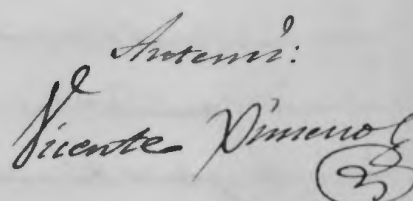 Antemi:
Vicente Ximeno